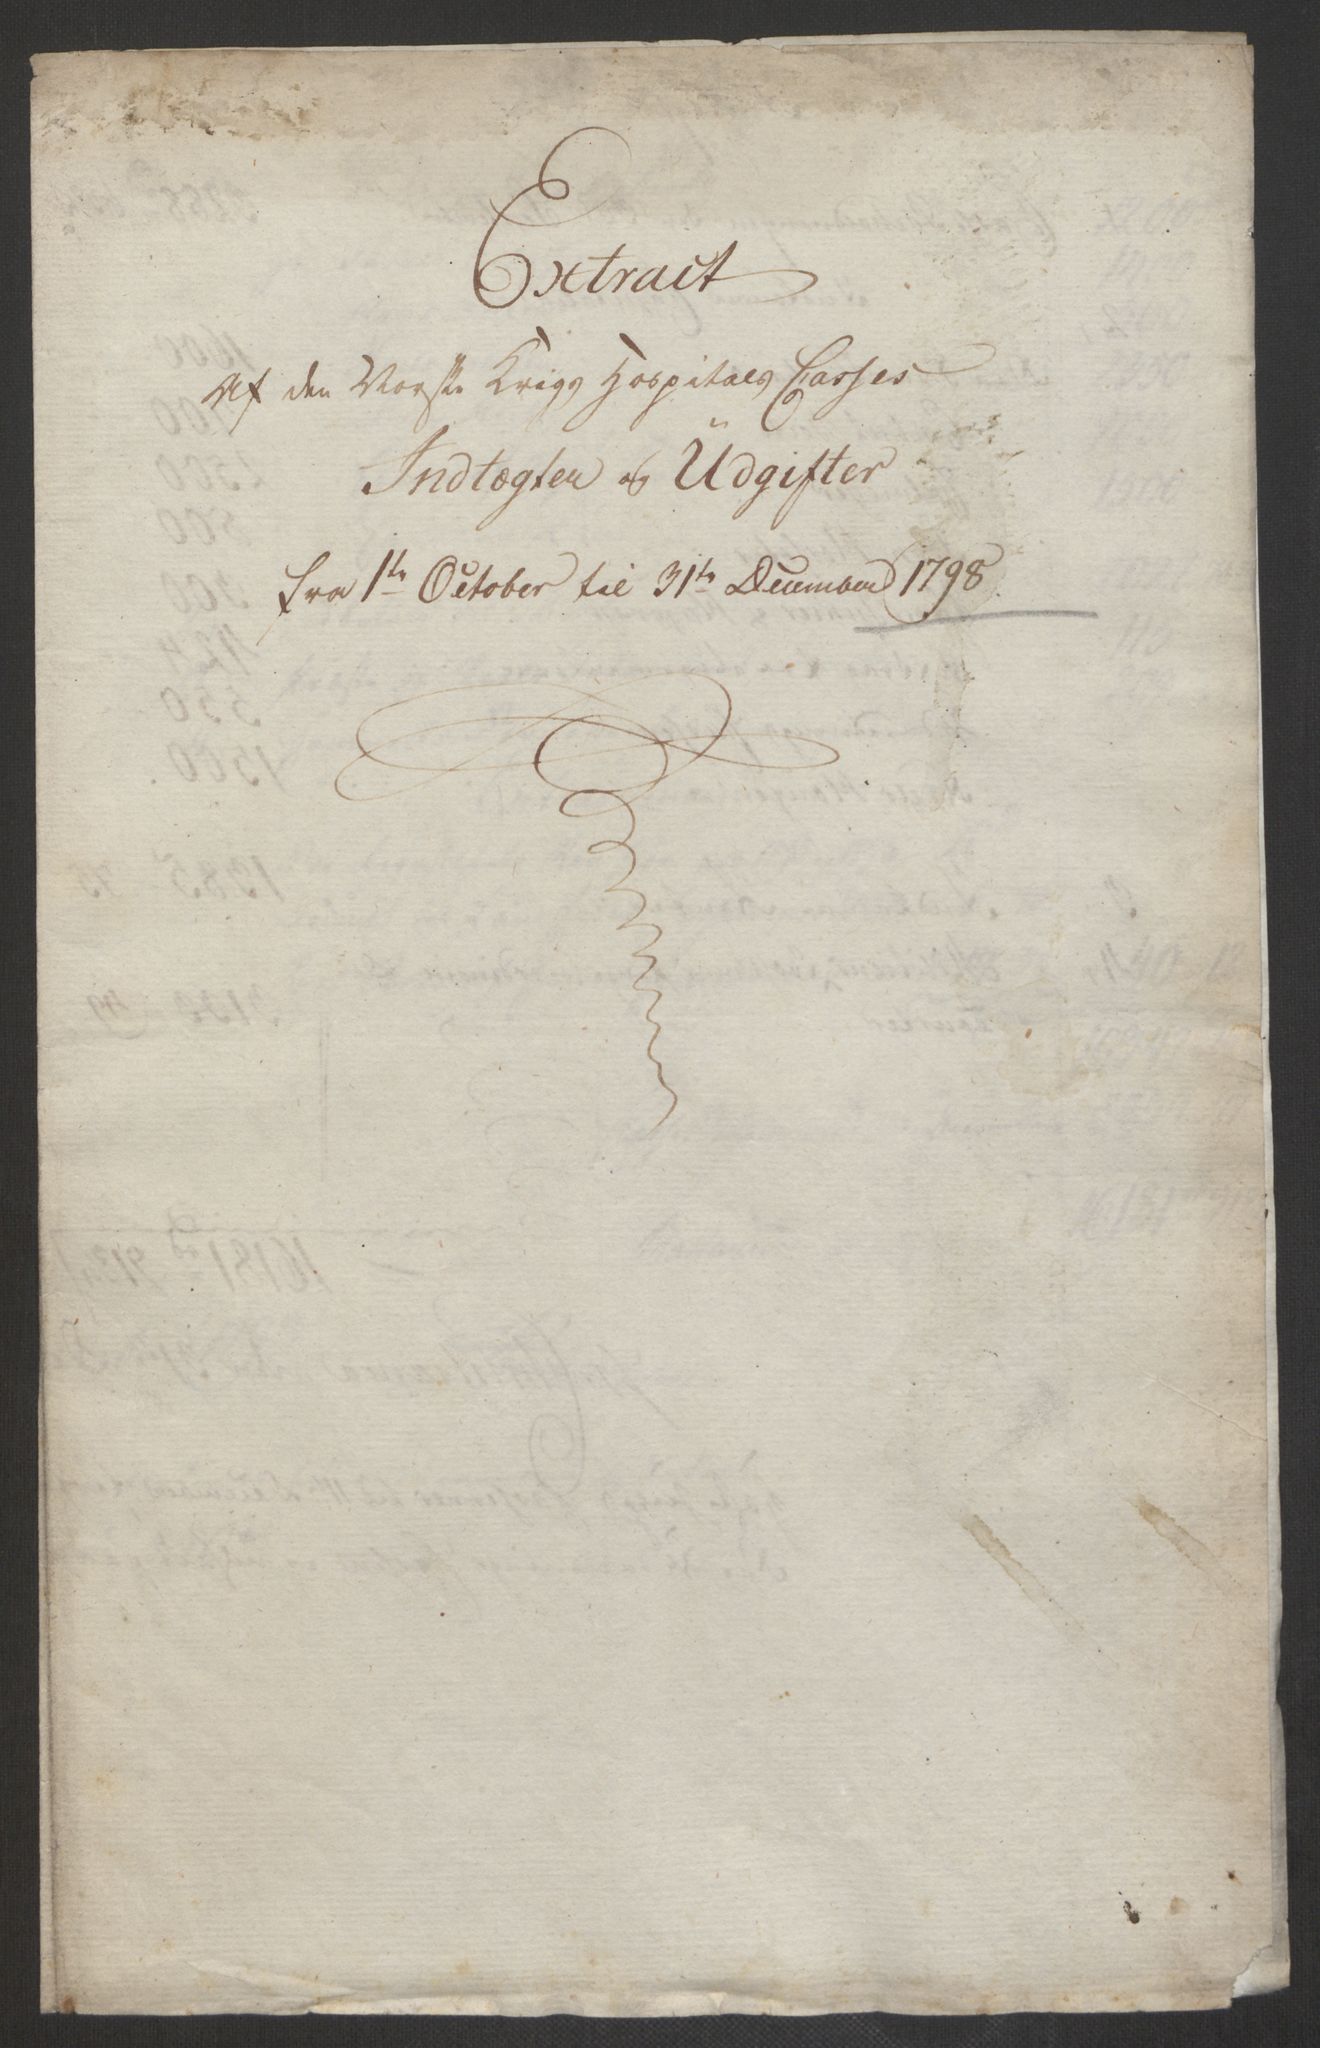 Extract
Af den Norske Krigs Hospitals Casses
Indtægter og Üdgifter
fra 1te October til 31te December 1798